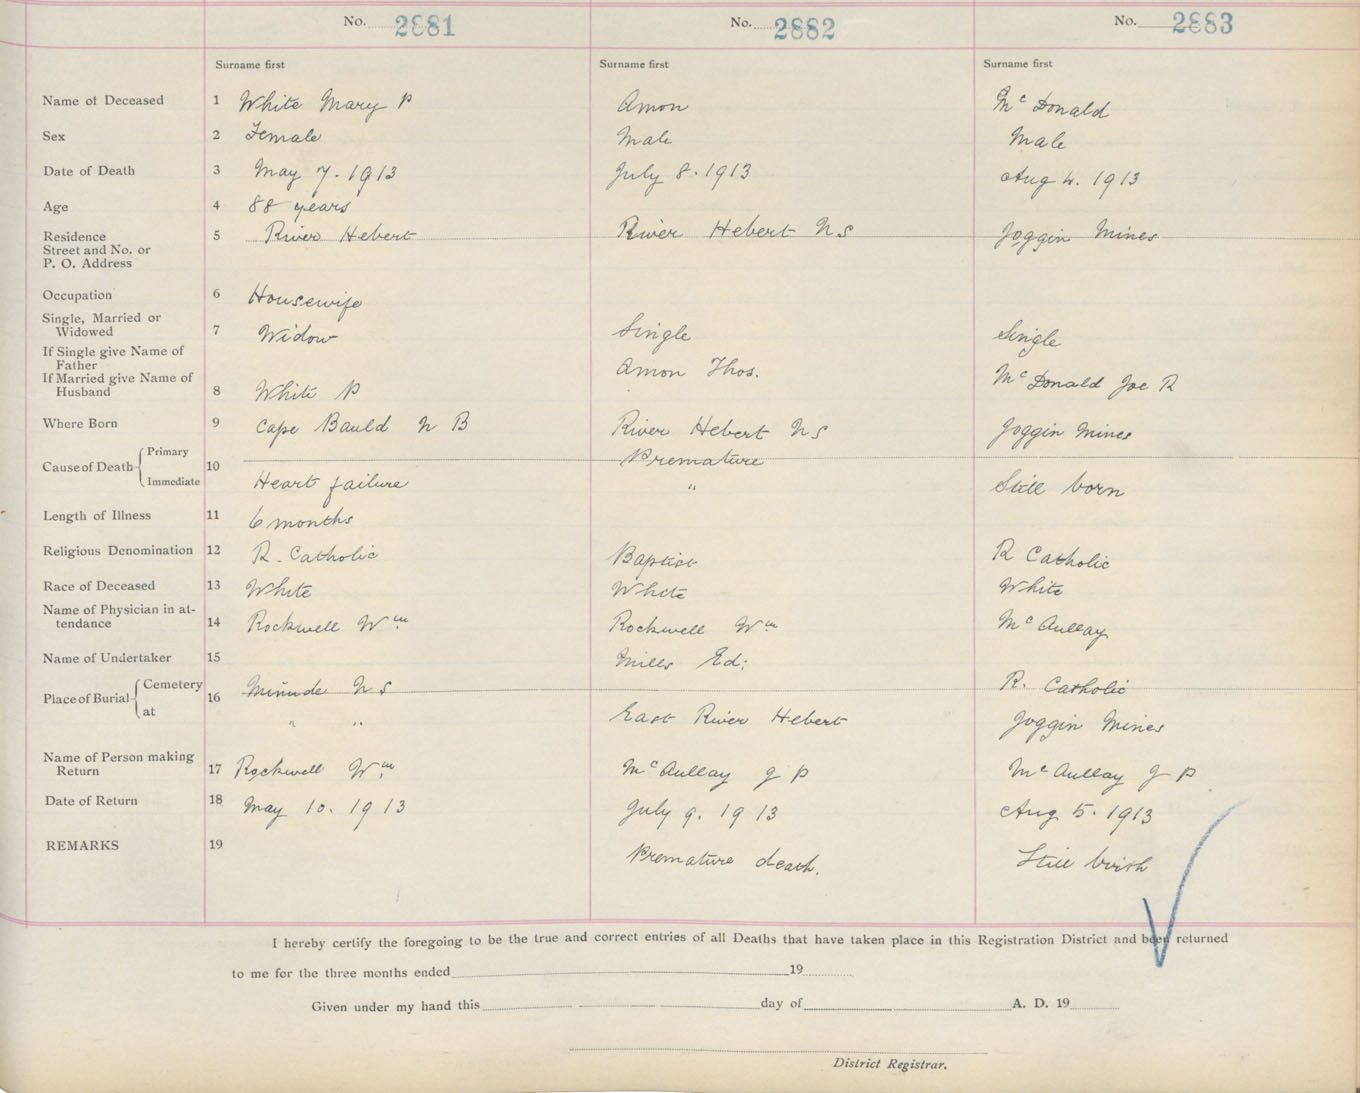 No. 2881 No. 2882 No. 2883
Surname first Surname first Surname first
Name of Deceased 1 White Mary P Amon Mc Donald
Sex 2 Female Male Male
Date of Death 3 May 7. 1913 July 8. 1913 Aug 4. 1913
Age 4 88 years
Residence 5 River Hebert River Hebert N S Joggin Mines
Street and No. or
P. O. Address
Occupation 6 Housewife
Single, Married or
Widowed 7 Widow Single Single
If Single give Name of
Father Amon Thos.
If Married give Name of
Husband 8 White P Mc Donald Joe R
Where Born 9 Cape Bauld N B River Hebert N S Joggin Mines
Cause of Death Primary 10 Premature
Immediate Heart failure " Still born
Length of Illness 11 6 months
Religious Denomination 12 R. Catholic Baptist R Catholic
Race of Deceased 13 White White White
Name of Physician in at-
tendance 14 Rockwell Wm Rockwell Wm Mc Aullay
Name of Undertaker 15 Mills Ed:
Place of Burial Cemetery 16 Minude N S R. Catholic
at " " East River Hebert Joggin Mines
Name of Person making
Return 17 Rockwell Wm Mc Aullay J P Mc Aullay J P
Date of Return 18 May 10. 1913 July 9. 1913 Aug 5. 1913
REMARKS 19 Premature death. Still birth
I hereby certify the foregoing to be the true and correct entries of all Deaths that have taken place in this Registration District and been returned
to me for the three months ended 19
Given under my hand this day of A. D. 19
District Registrar.